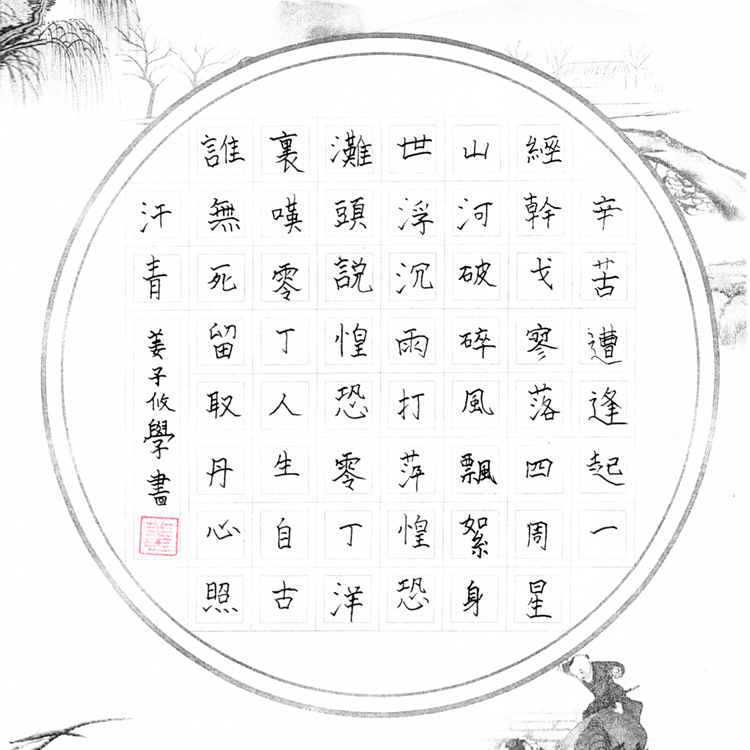 辛苦遭逢起一
經幹戈寥落四周星
山河破碎風飄絮身
世浮沉雨打萍惶恐
灘頭説惶恐零丁洋
裏嘆零丁人生自古
誰無死留取丹心照
汗青
姜子攸學書